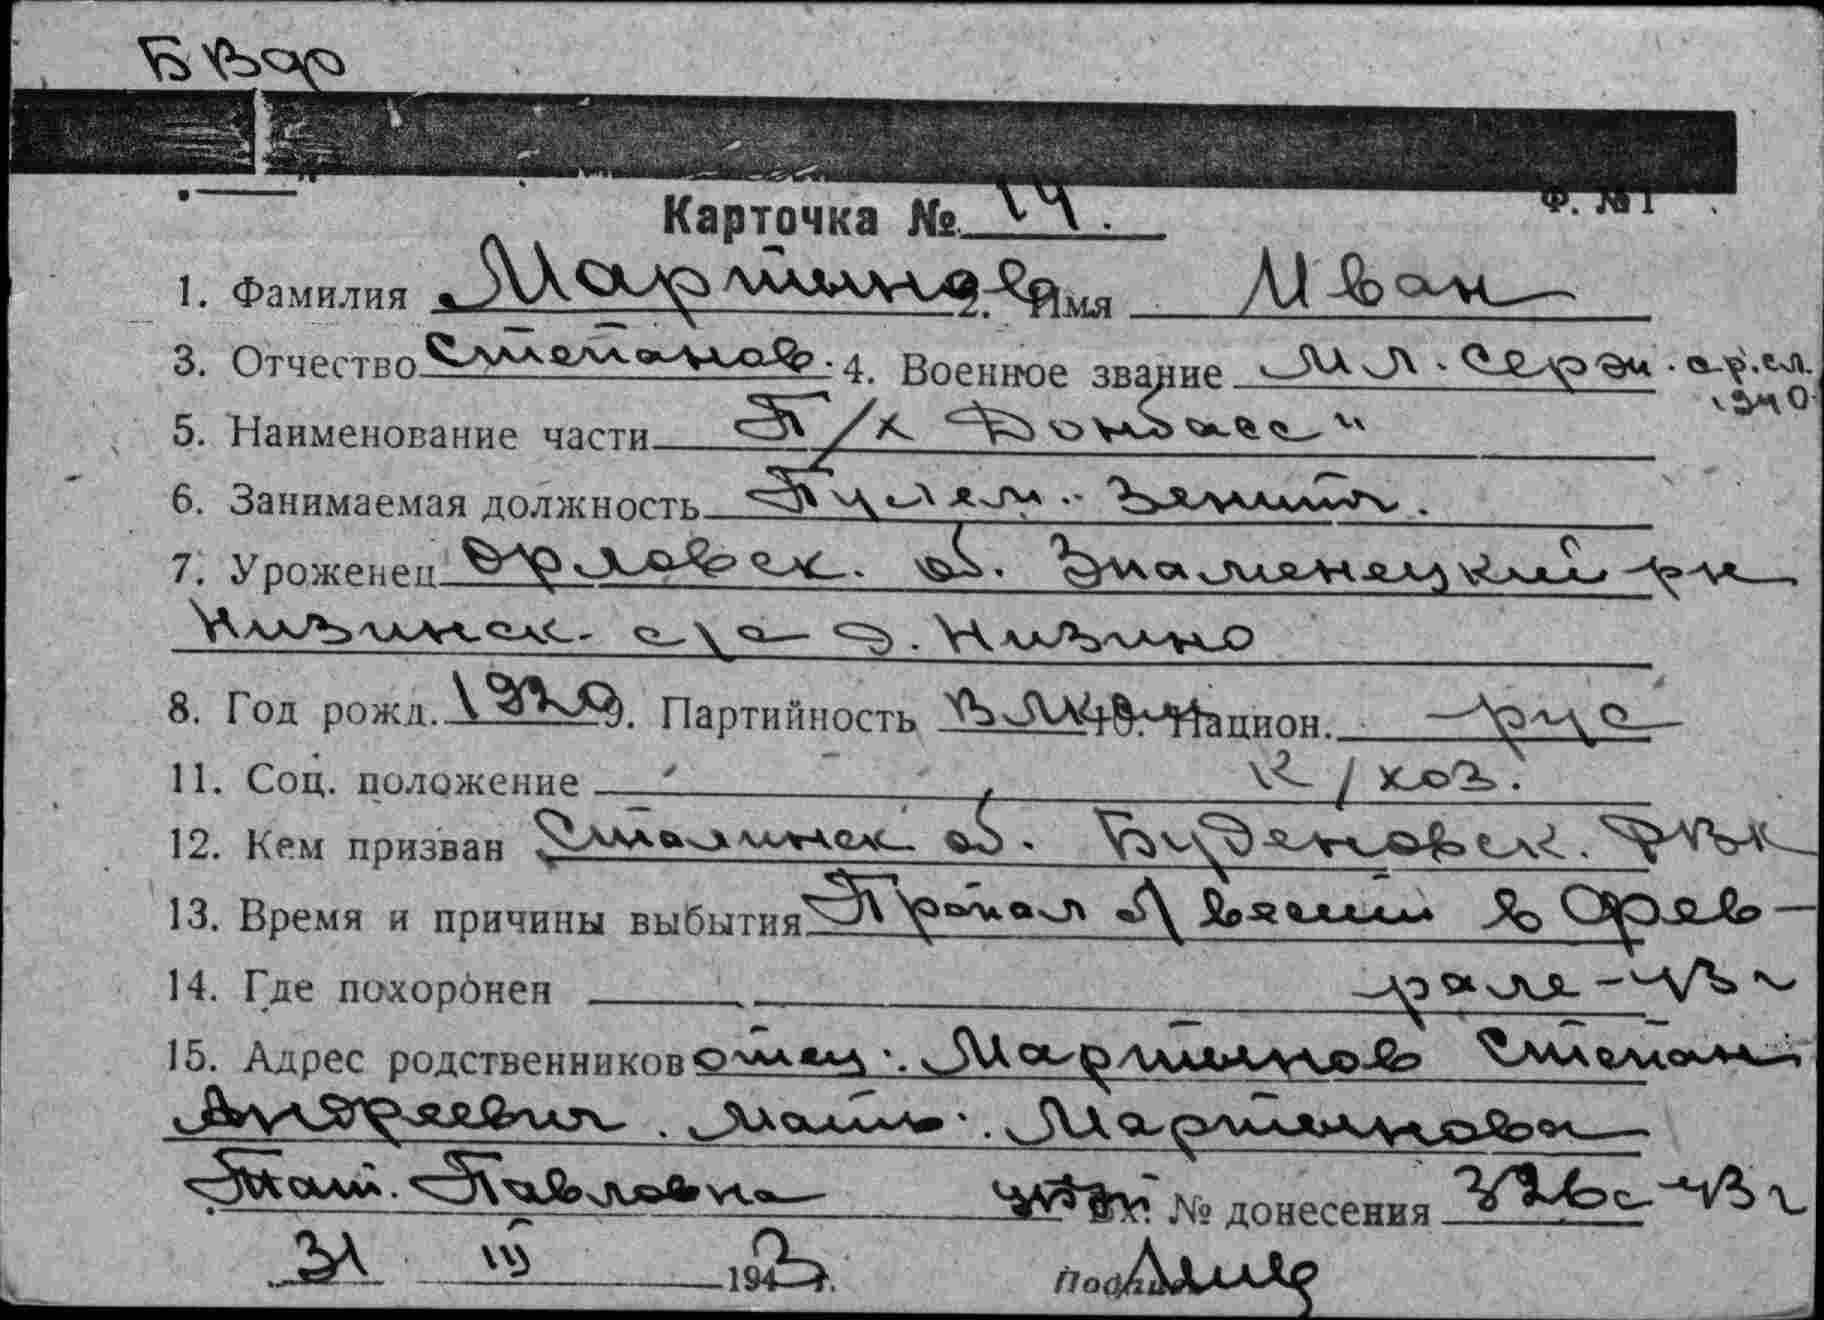 Б Вор
Карточка № 14. Ф. № 1
1. Фамилия Мартынов 2. Имя Иван
3. Отчество Степанов. 4. Военное звание Мл. Серж. ср. сл.
1940
5. Наименование части П/х Донбасс"
6. Занимаемая должность Пулем. Зенитч.
7. Уроженец Орловск. об. Знаменецкий р-н
Низинск. с/с д. Низино
8. Год рожд. 1920 9. Партийность ВЛКСМ 10. Национ. рус
11. Соц. положение к/хоз.
12. Кем призван Сталинск об. Буденовск. РВК
13. Время и причины выбытия Пропал б/вести в Фев-
14. Где похоронен рале-43 г
15. Адрес родственников отец. Мартынов Степан
Андреевич. Мать. Мартынова
Тат. Павловна Вх. № донесения 326с-43 г
31 III 1943 г. Подпись